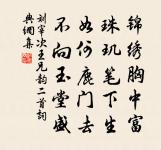 锦绣胸中富
珠玑笔下生
如何鹿门去
不向玉堂盛
刘宰次王兄韵二首词
典网集